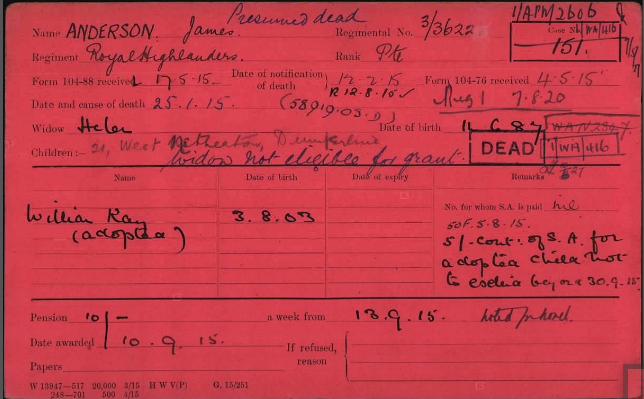 Presumed dead
1/APM/2606
Name ANDERSON. James. Regimental No. 3/3622
Case No. 1 WA 416
151.
Regiment Royal Highlanders. Rank Pte
Form 104-88 received 17.5.15. Date of notification of death 12.2.15 Form 104-76 received 4.5.15
R 12.8.15
Date and cause of death 25.1.15. (58919.03.D) Reg 1 7.8.20
Widow Helen Date of birth 11.6.87
DEAD 1 WA 416
Children :— 21, West
Widow not eligible for grant.
Name Date of birth Date of expiry Remarks
No. for whom S.A. is paid nil
William Kay 3.8.03
(adopted)
50F.5.8.15.
5/- cont: of S.A. for
adopted child not
to extend beyond 30.9.15
Pension 10/- a week from 13.9.15.
Date awarded 10.9.15. If refused, reason
Papers
W 13947—517 20,000 3/15 H W V(P) G. 15/251
248—701 500 4/15